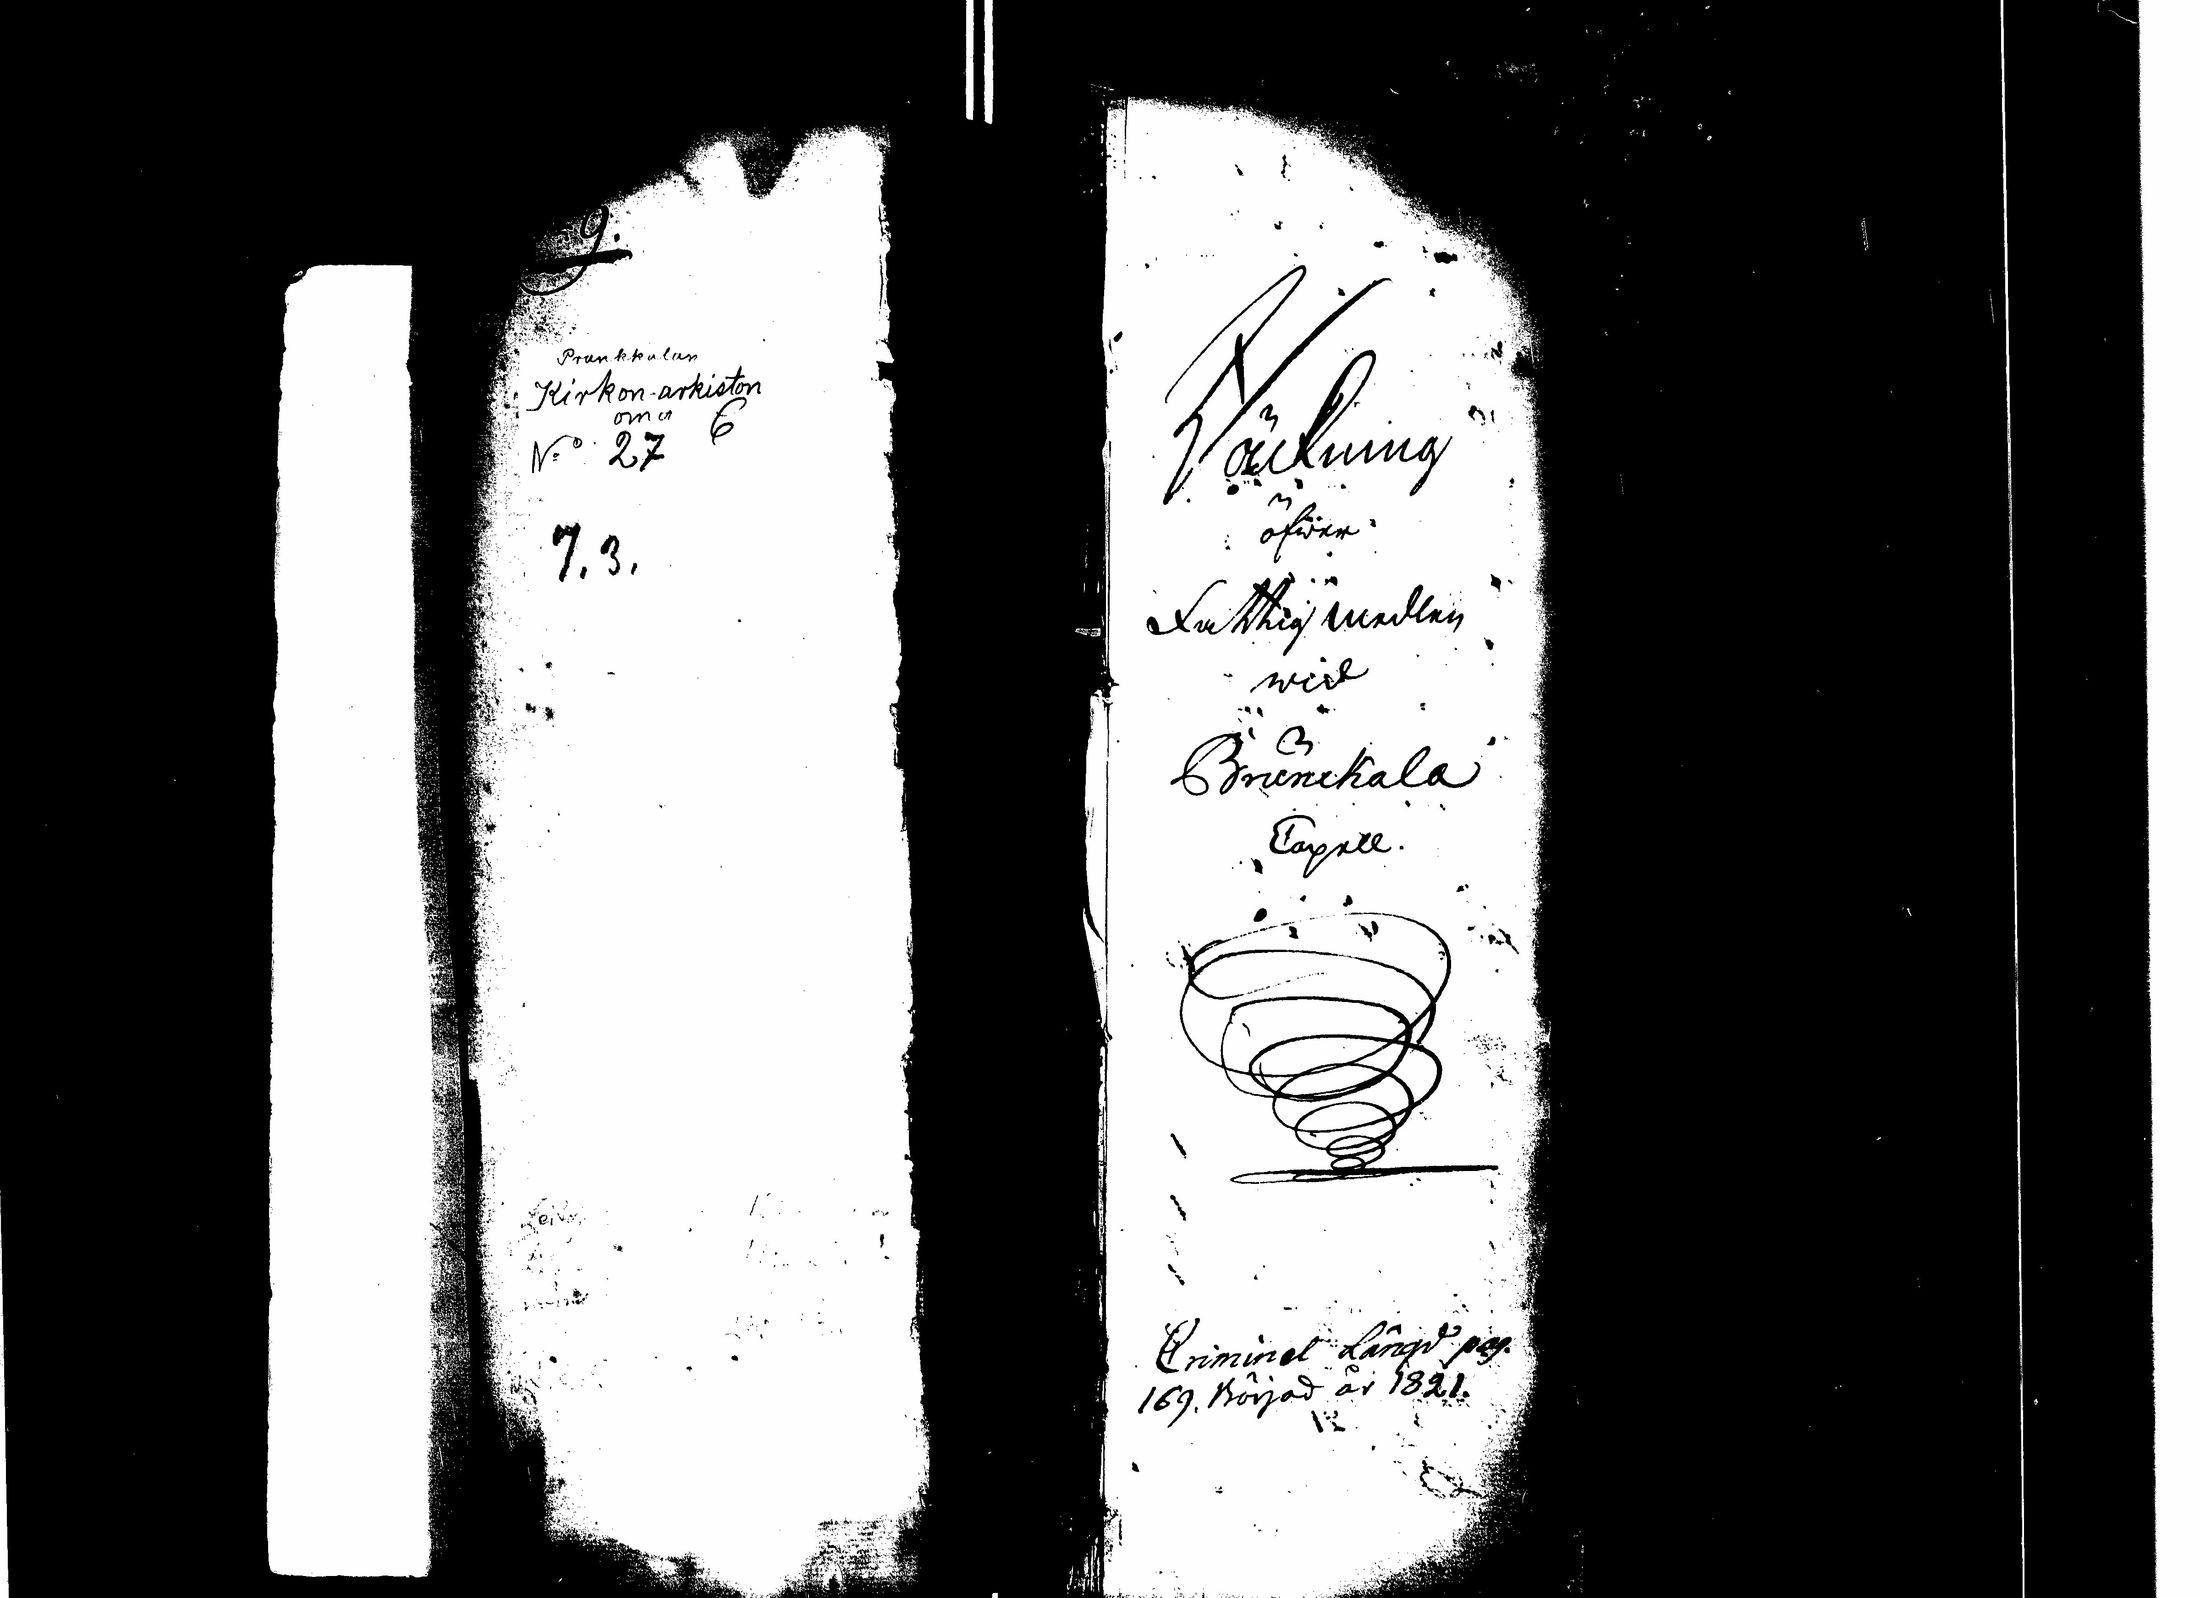 9.
Prunkkalan
Kirkon-arkiston
oma 6
No 27
7.3.
Räckning
öfwer
Fattig Medlen
wid
Brunckala
Capell.
Criminel Längd pag.
169. Börjad år 1821.